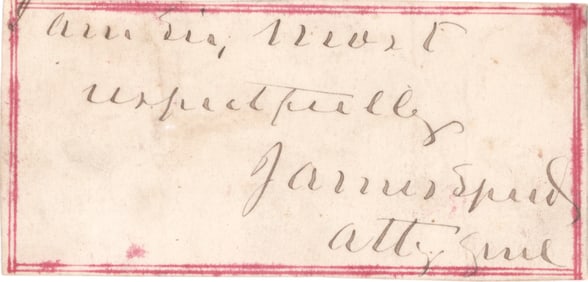 I am Sir, most
respectfully
James Speed,
Atty Genl